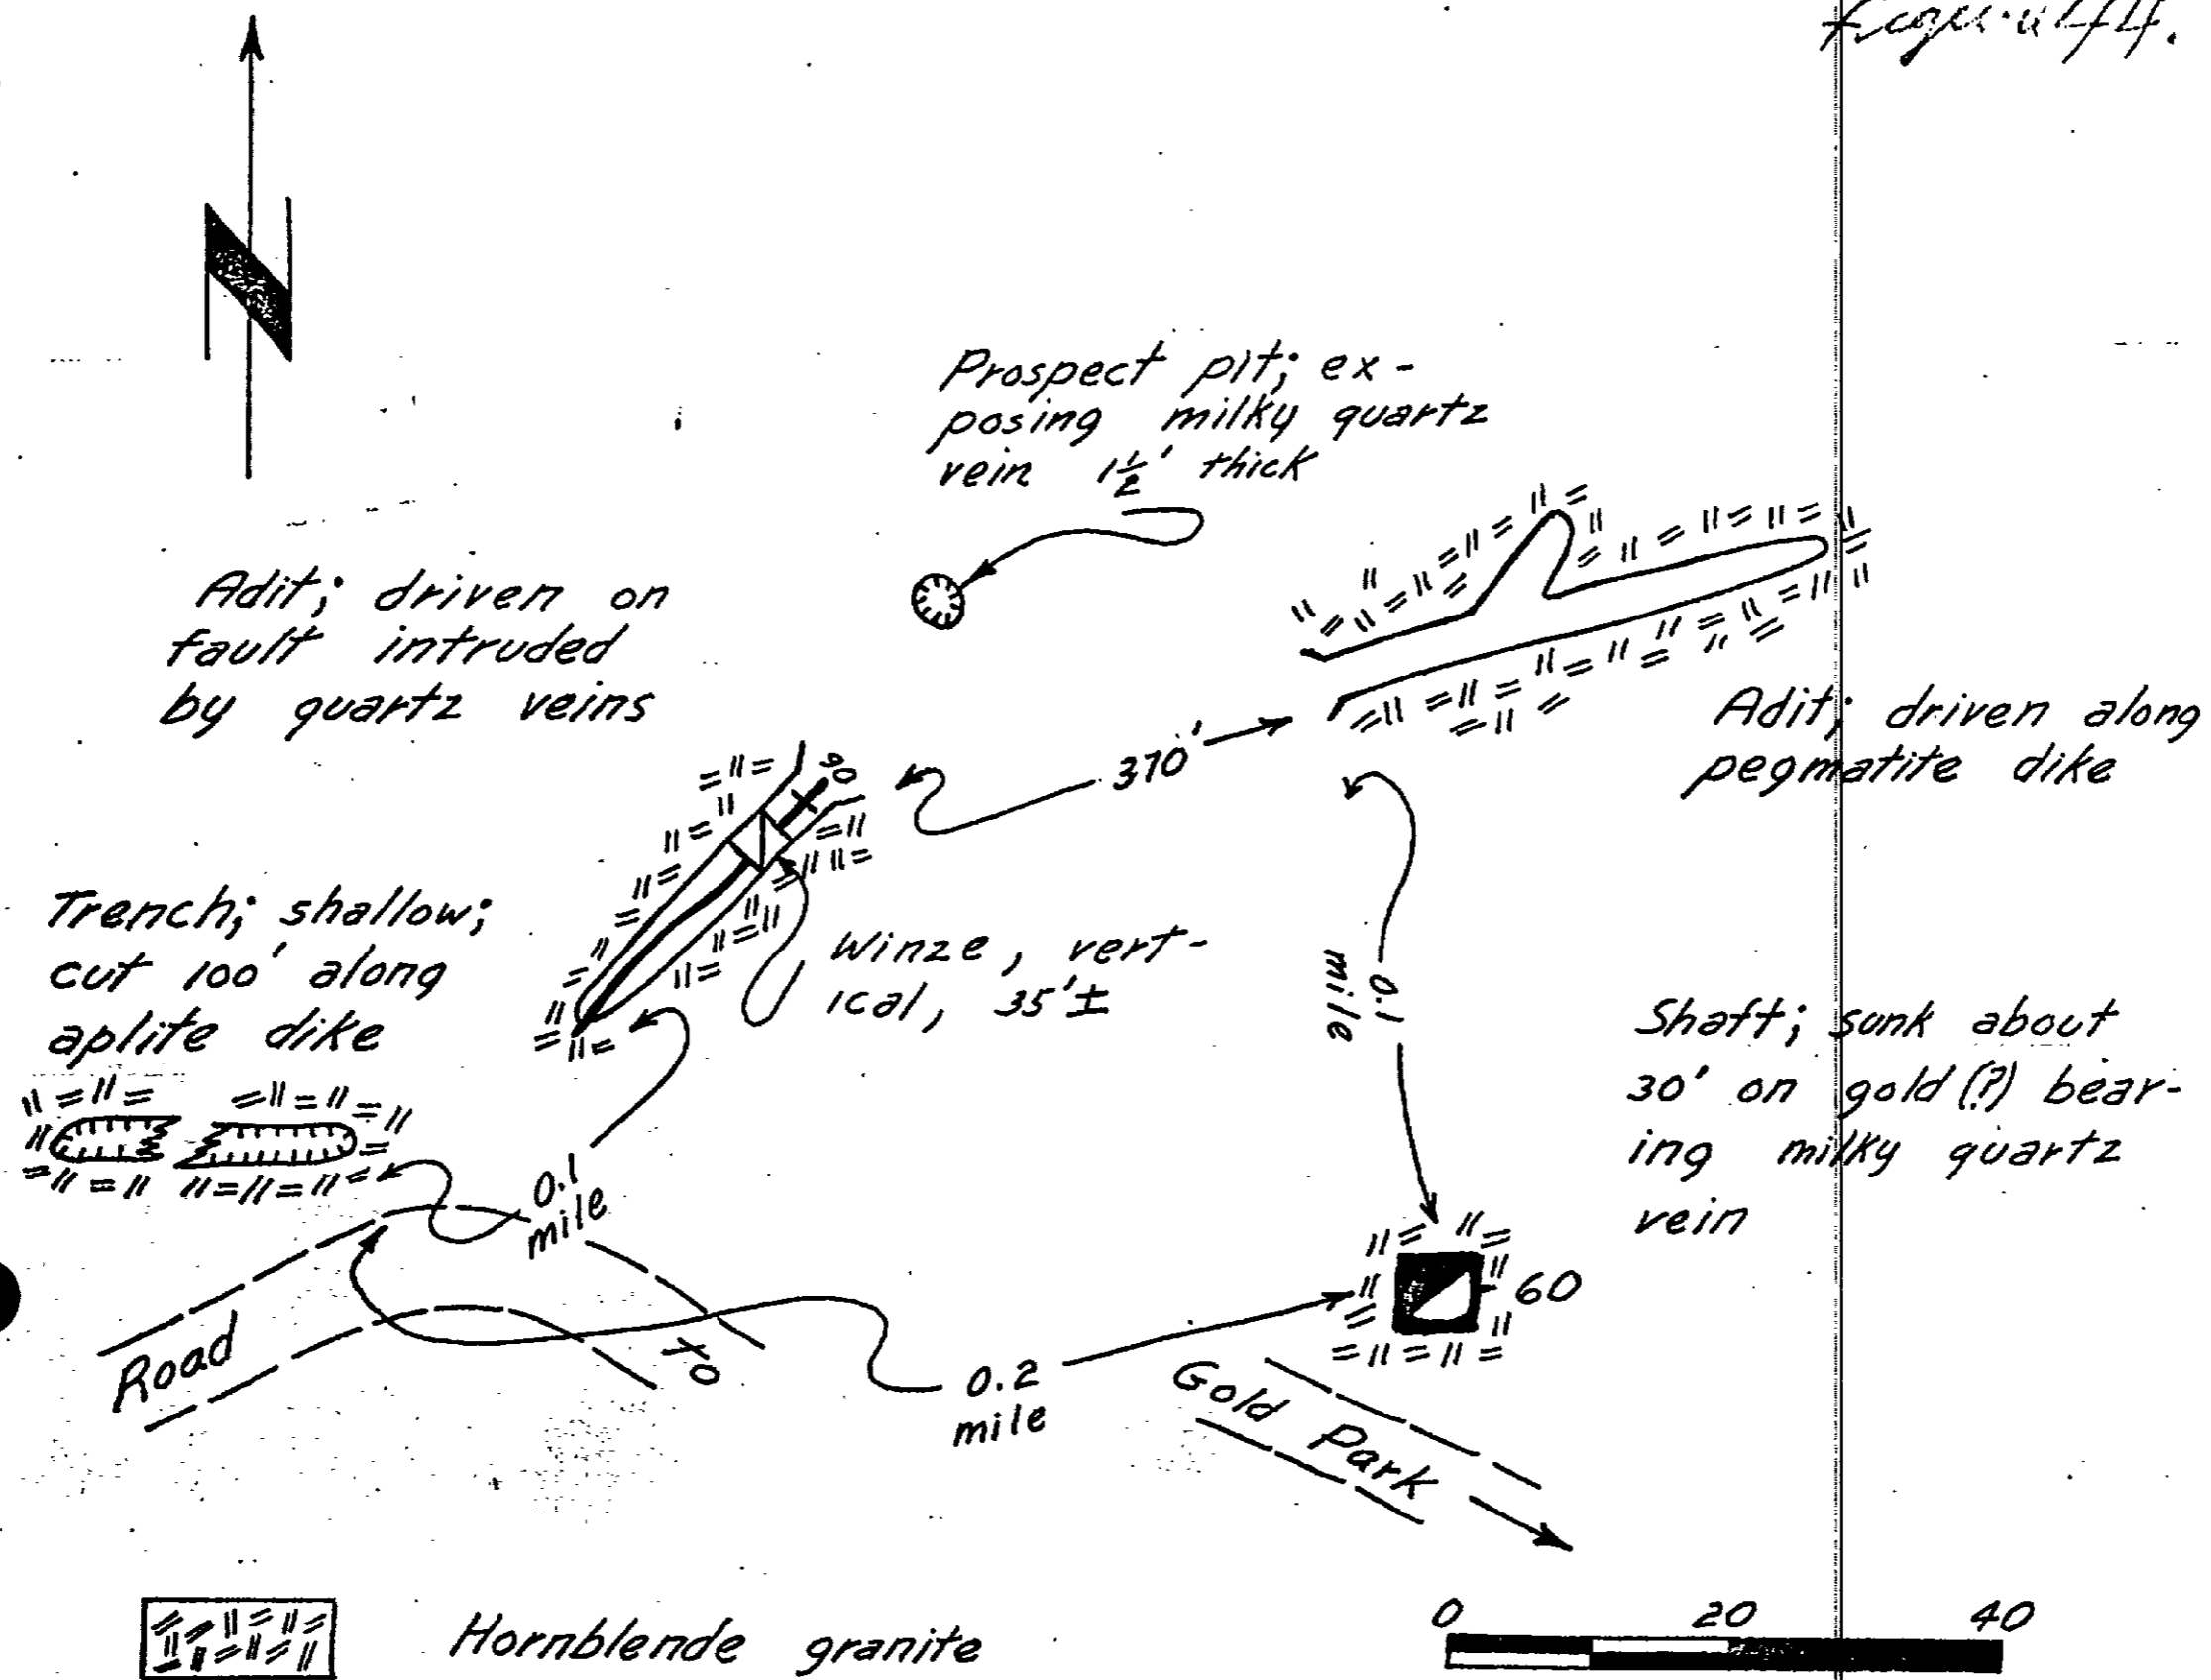 Figure 44.
N
Prospect pit; ex-
posing milky quartz
vein 1½' thick
Adit; driven on
fault intruded
by quartz veins
90
370'
Adit; driven along
pegmatite dike
Trench; shallow;
cut 100' along
aplite dike
Winze, vert-
ical, 35'±
0.1
mile
Shaft; sunk about
30' on gold (?) bear-
ing milky quartz
vein
0.1
mile
60
Road
To
0.2
mile
Gold Park
Hornblende granite
0 20 40